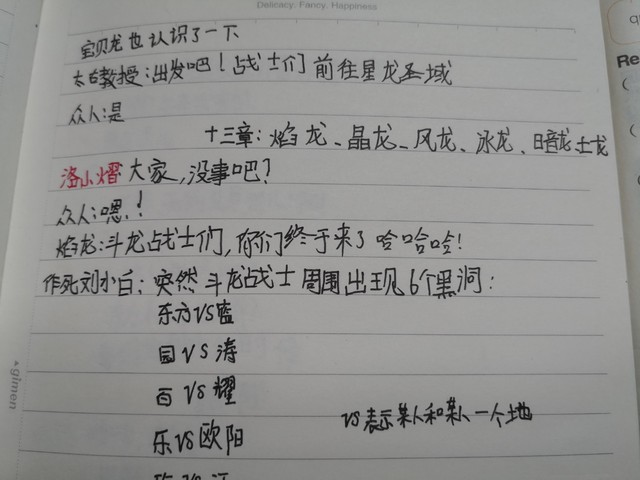 Delicacy. Fancy. Happiness
宝贝龙也认识了一下
太白教授：出发吧！战士们前往星龙圣域
众人：是
十三章：焰龙、晶龙、风龙、冰龙、暗龙、土龙
洛小熠 大家，没事吧？
众人：嗯！
焰龙：斗龙战士们，你们终于来了哈哈哈！
作死刘小白：突然斗龙战士周围出现6个黑洞：
东方VS蓝
园VS涛
百VS耀
乐VS欧阳
VS表示某人和某人一个地
glmen
Re